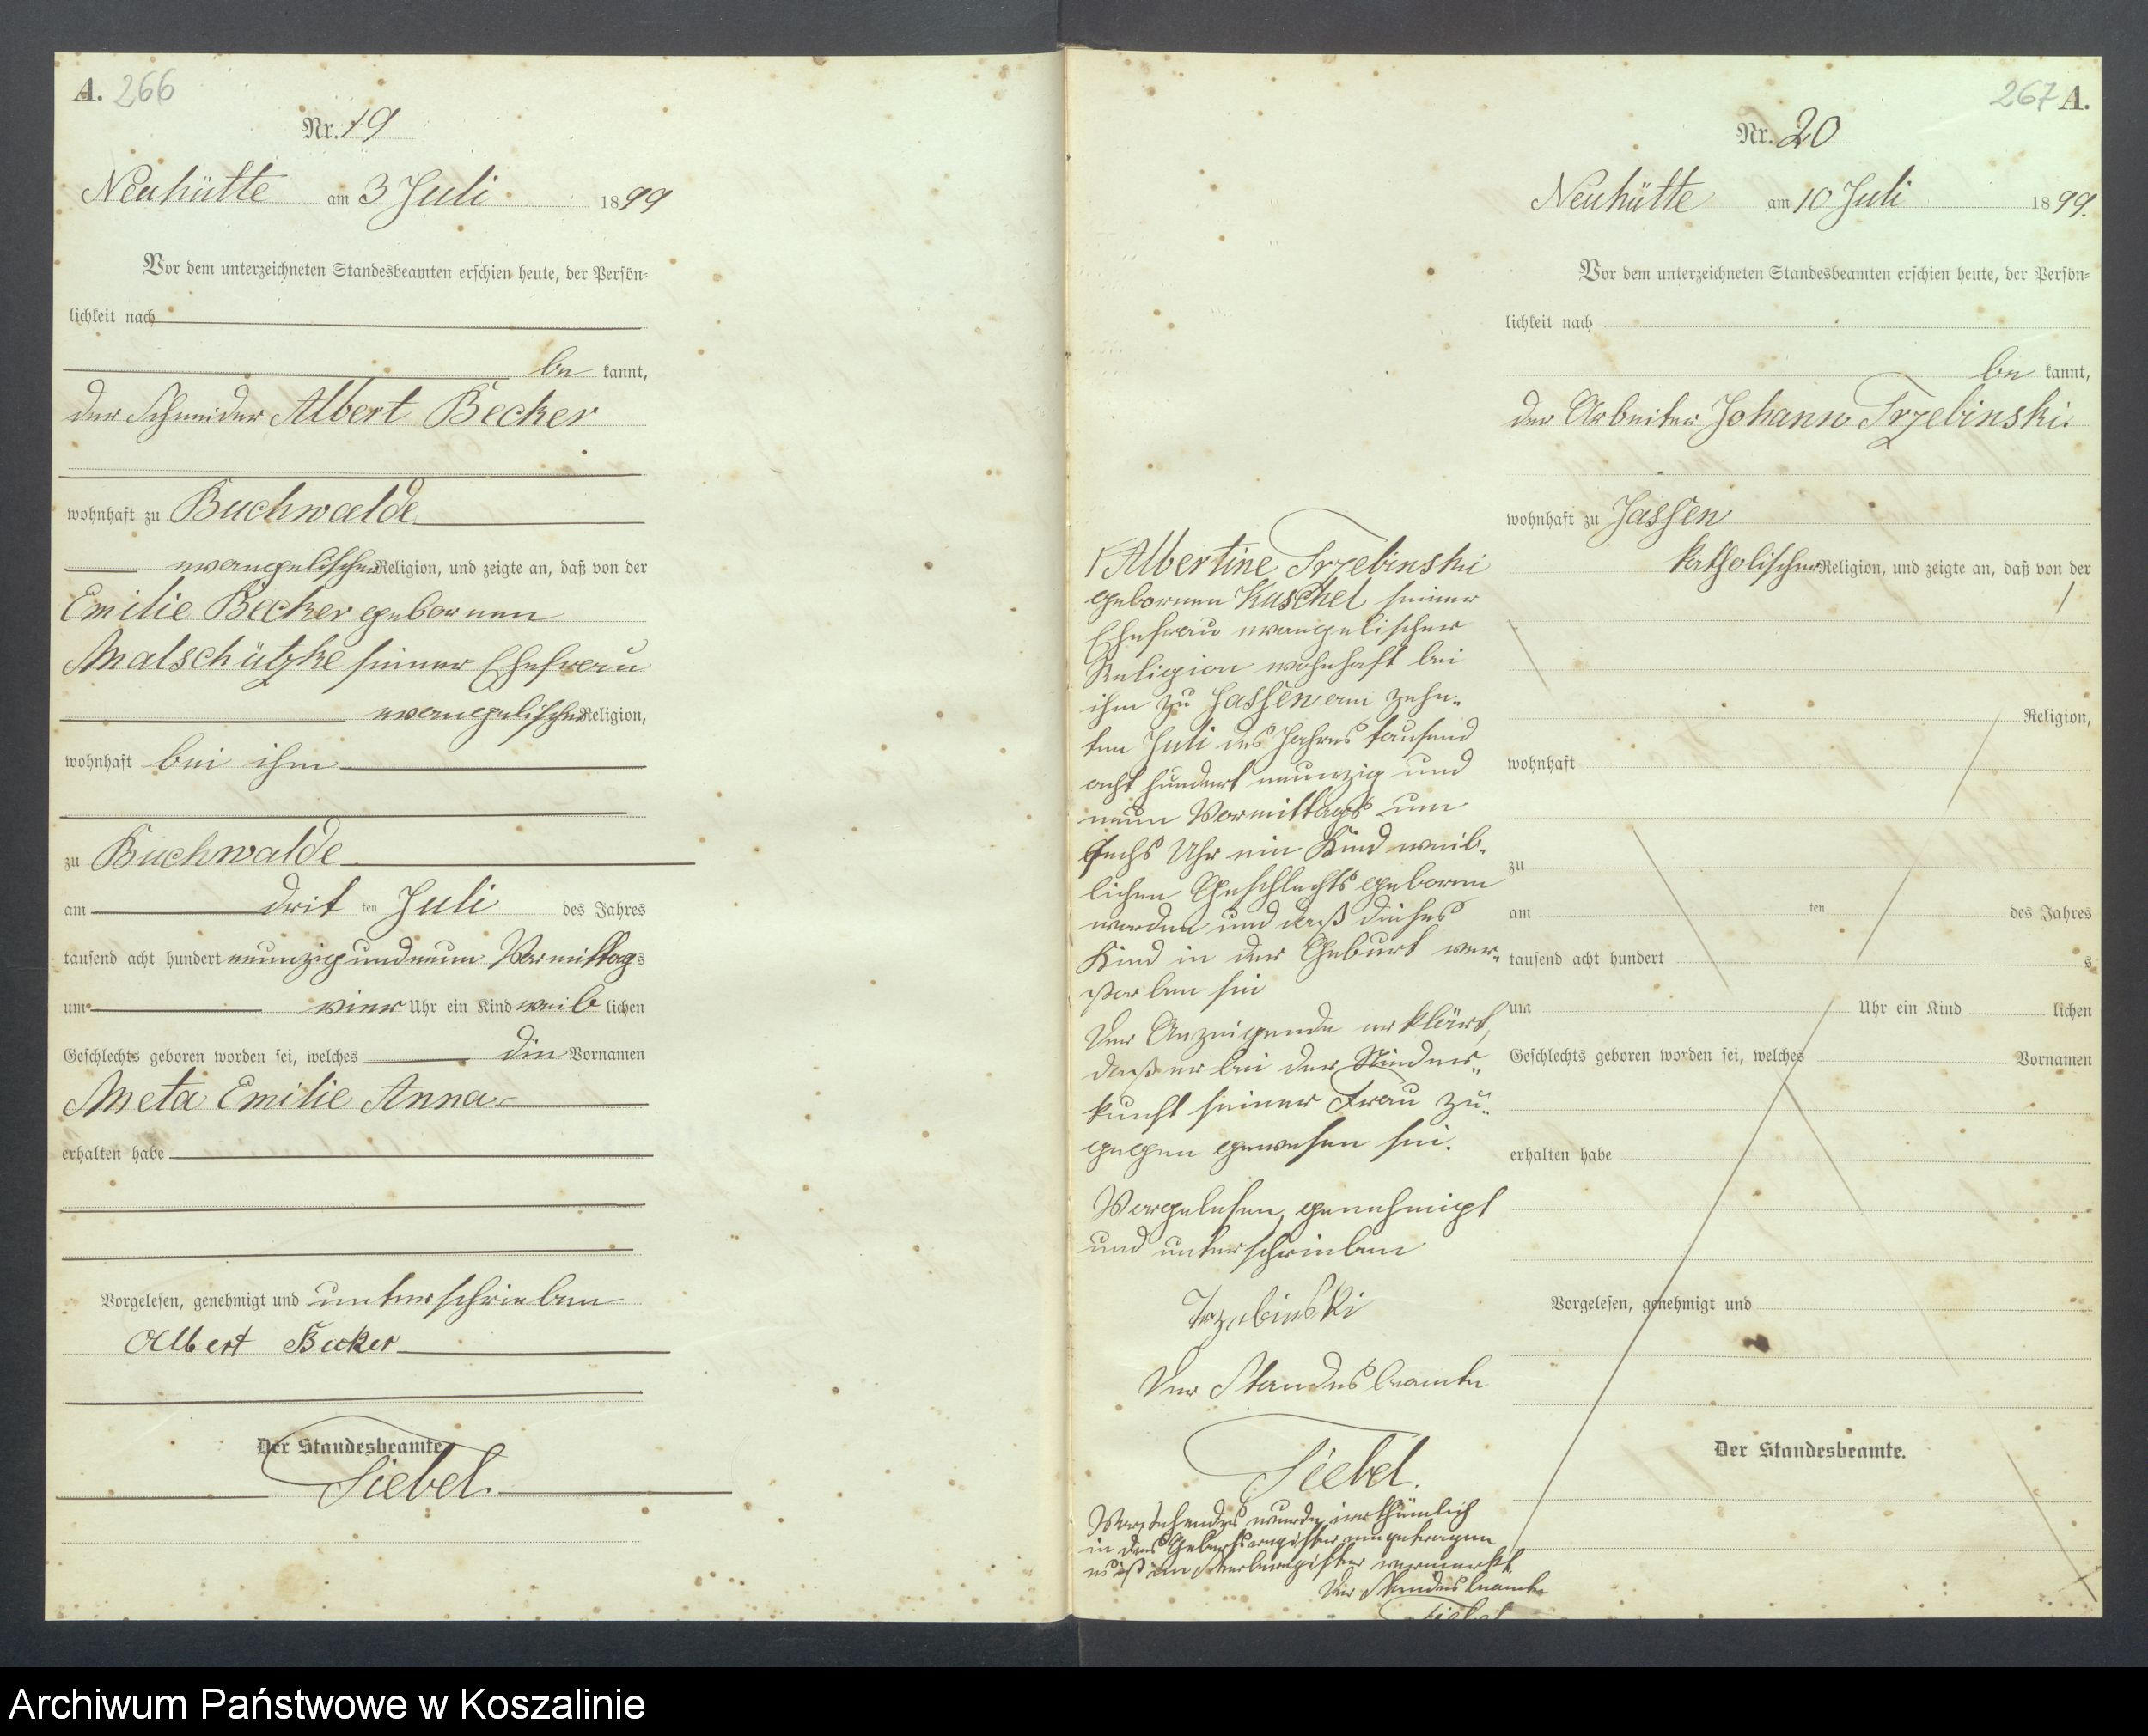 A. 266
Nr. 19
Neuhütte am 3 Juli 1899
Vor dem unterzeichneten Standesbeamten erschien heute, der Persön=
lichkeit nach
be kannt,
der Schneider Albert Becker
wohnhaft zu Buchwalde
evangelischer Religion, und zeigte an, daß von der
Emilie Becker gebornen
Malschützke seiner Ehefrau
evangelischer Religion,
wohnhaft bei ihm
zu Buchwalde
am dritten Juli des Jahres
tausend acht hundert neunzig und neun Vormittags
um vier Uhr ein Kind weiblichen
Geschlechts geboren worden sei, welches die Vornamen
Meta Emilie Anna
erhalten habe
Vorgelesen, genehmigt und unterschrieben
Albert Becker
Der Standesbeamte.
Siebel.
267 A.
Nr. 20
Neuhütte am 10 Juli 1899.
Vor dem unterzeichneten Standesbeamten erschien heute, der Persön=
lichkeit nach
be kannt,
der Arbeiter Johann Trzebinski.
wohnhaft zu Jassen
katholischer Religion, und zeigte an, daß von der
Religion,
wohnhaft
zu
am ten des Jahres
tausend acht hundert s
um Uhr ein Kind lichen
Geschlechts geboren worden sei, welches Vornamen
erhalten habe
Vorgelesen, genehmigt und
Der Standesbeamte.
Albertine Trzebinski
gebornen Kuschel seiner
Ehefrau evangelischer
Religion wohnhaft bei
ihm zu Jassen am zehn-
ten Juli des Jahres tausend
acht hundert neunzig und
neun Vormittags um
sechs Uhr ein Kind weib-
lichen Geschlechts geboren
worden und daß dieses
Kind in der Geburt ver-
storben sei
Der Anzeigende erklärt,
daß er bei der Nieder-
kunft seiner Frau zu-
gegen gewesen sei.
Vorgelesen, genehmigt
und unterschrieben
Trzebinski
Der Standesbeamte
Siebel.
Vorstehendes wurde irrthümlich
in das Geburtsregister eingetragen
es ist im Sterberegister vermerkt
Der Standesbeamte
Siebel
Archiwum Państwowe w Koszalinie